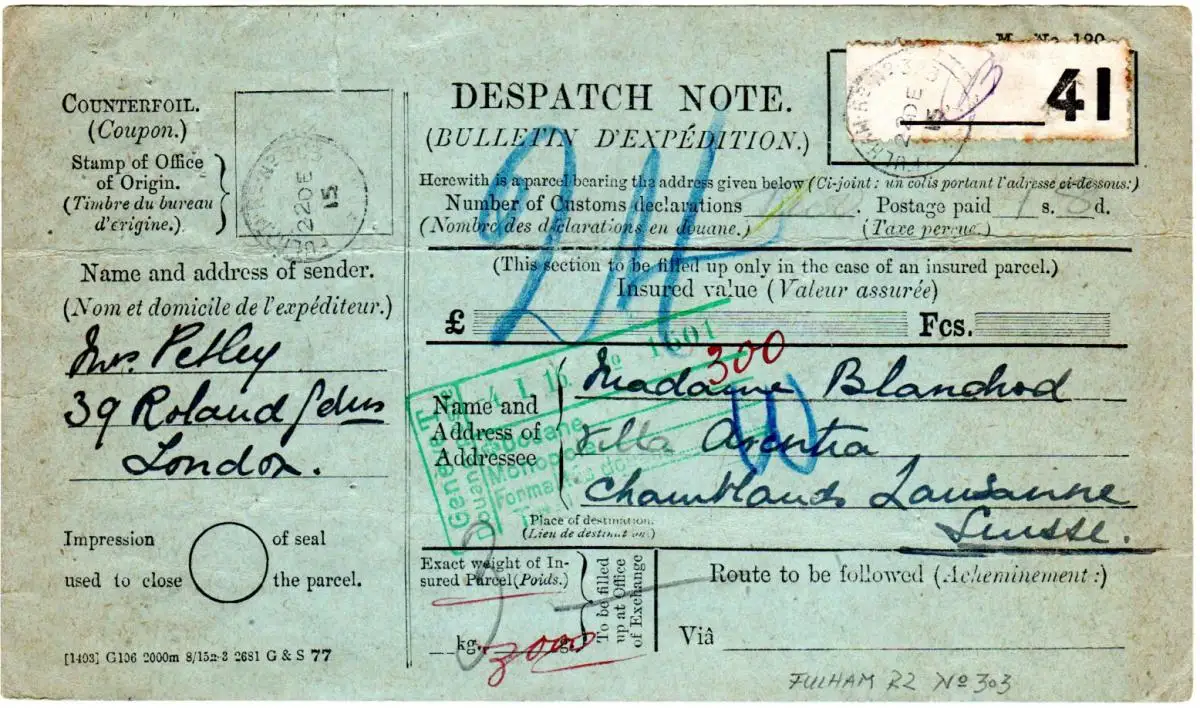 COUNTERFOIL.
(Coupon.)
Stamp of Office
of Origin.
(Timbre du bureau
d'origine.)
22 DE
15
Name and address of sender.
(Nom et domicile de l'expéditeur.)
Mrs. Petley
39 Roland Gdns
London.
Impression of seal
used to close the parcel.
[1403] G106 2000m 8/15
2681 G & S 77
DESPATCH NOTE.
(BULLETIN D'EXPÉDITION.)
41
22 DE
15
Herewith is a parcel bearing the address given below (Ci-joint: un colis portant l'adresse ci-dessous:)
Number of Customs declarations Postage paid 1 s. d.
(Nombre des déclarations en douane.) (Taxe perçue.)
(This section to be filled up only in the case of an insured parcel.)
Insured value (Valeur assurée)
£ Fcs.
1601
300
Name and
Address of
Addressee
Madame Blanchod
Villa
Lausanne
Suisse.
Douane
Monopole
Place of destination.
(Lieu de destination.)
Exact weight of In-
sured Parcel (Poids.)
kg. g.
3000
To be filled
up at Office
of Exchange
Route to be followed (Acheminement:)
Viâ
FULHAM R2 No 303